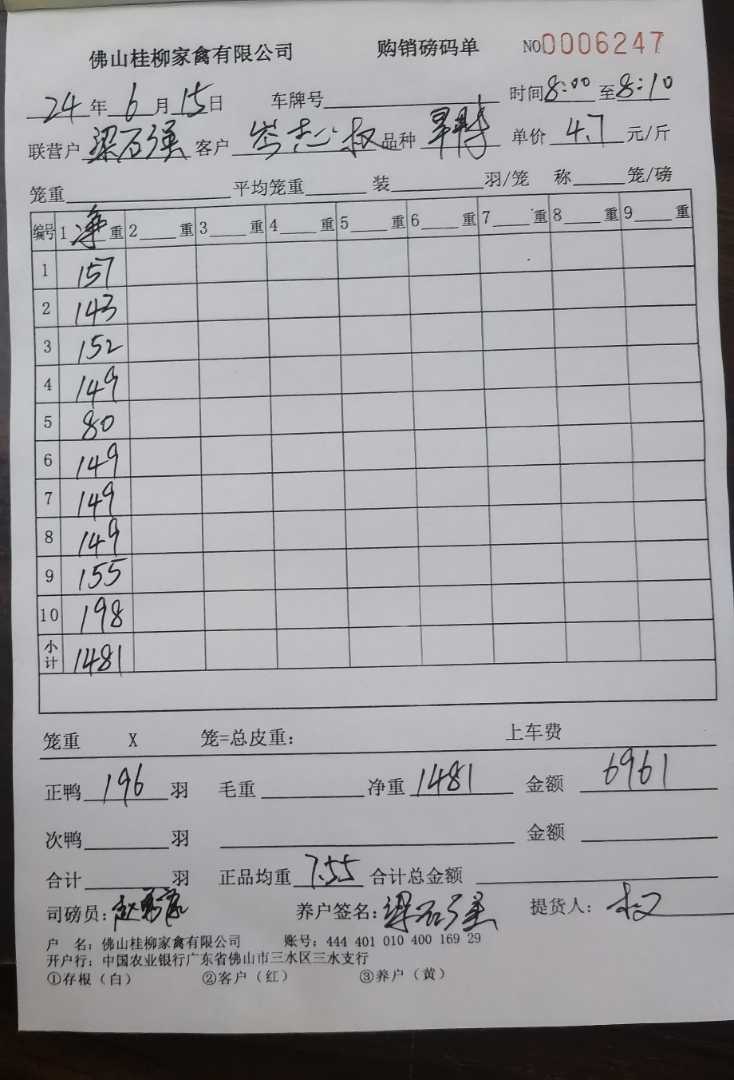 佛山桂柳家禽有限公司 购销磅码单 NO0006247
24年6月15日 车牌号 时间8:00至8:10
联营户 梁石强 客户 岑志权 品种 单价 4.7 元/斤
笼重 平均笼重 装 羽/笼 称 笼/磅
编号 1净重 2 重 3 重 4 重 5 重 6 重 7 重 8 重 9 重
1 157
2 143
3 152
4 149
5 80
6 149
7 149
8 149
9 155
10 198
小计 1481
笼重 X 笼=总皮重: 上车费
正鸭 196 羽 毛重 净重 1481 金额 6961
次鸭 羽 金额
合计 羽 正品均重 7.55 合计总金额
司磅员: 养户签名: 梁石强 提货人: 权
户 名: 佛山桂柳家禽有限公司 账号: 444 401 010 400 169 29
开户行: 中国农业银行广东省佛山市三水区三水支行
①存根(白) ②客户(红) ③养户(黄)